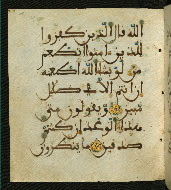 الله قال الذين كفروا
للذين امنوا انطعم
من لو يشاء الله اطعمه
ان انتم الا في ضلل
مبين ويقولون متى
هذا الوعد ان كنتم
صدقين ما ينظرون